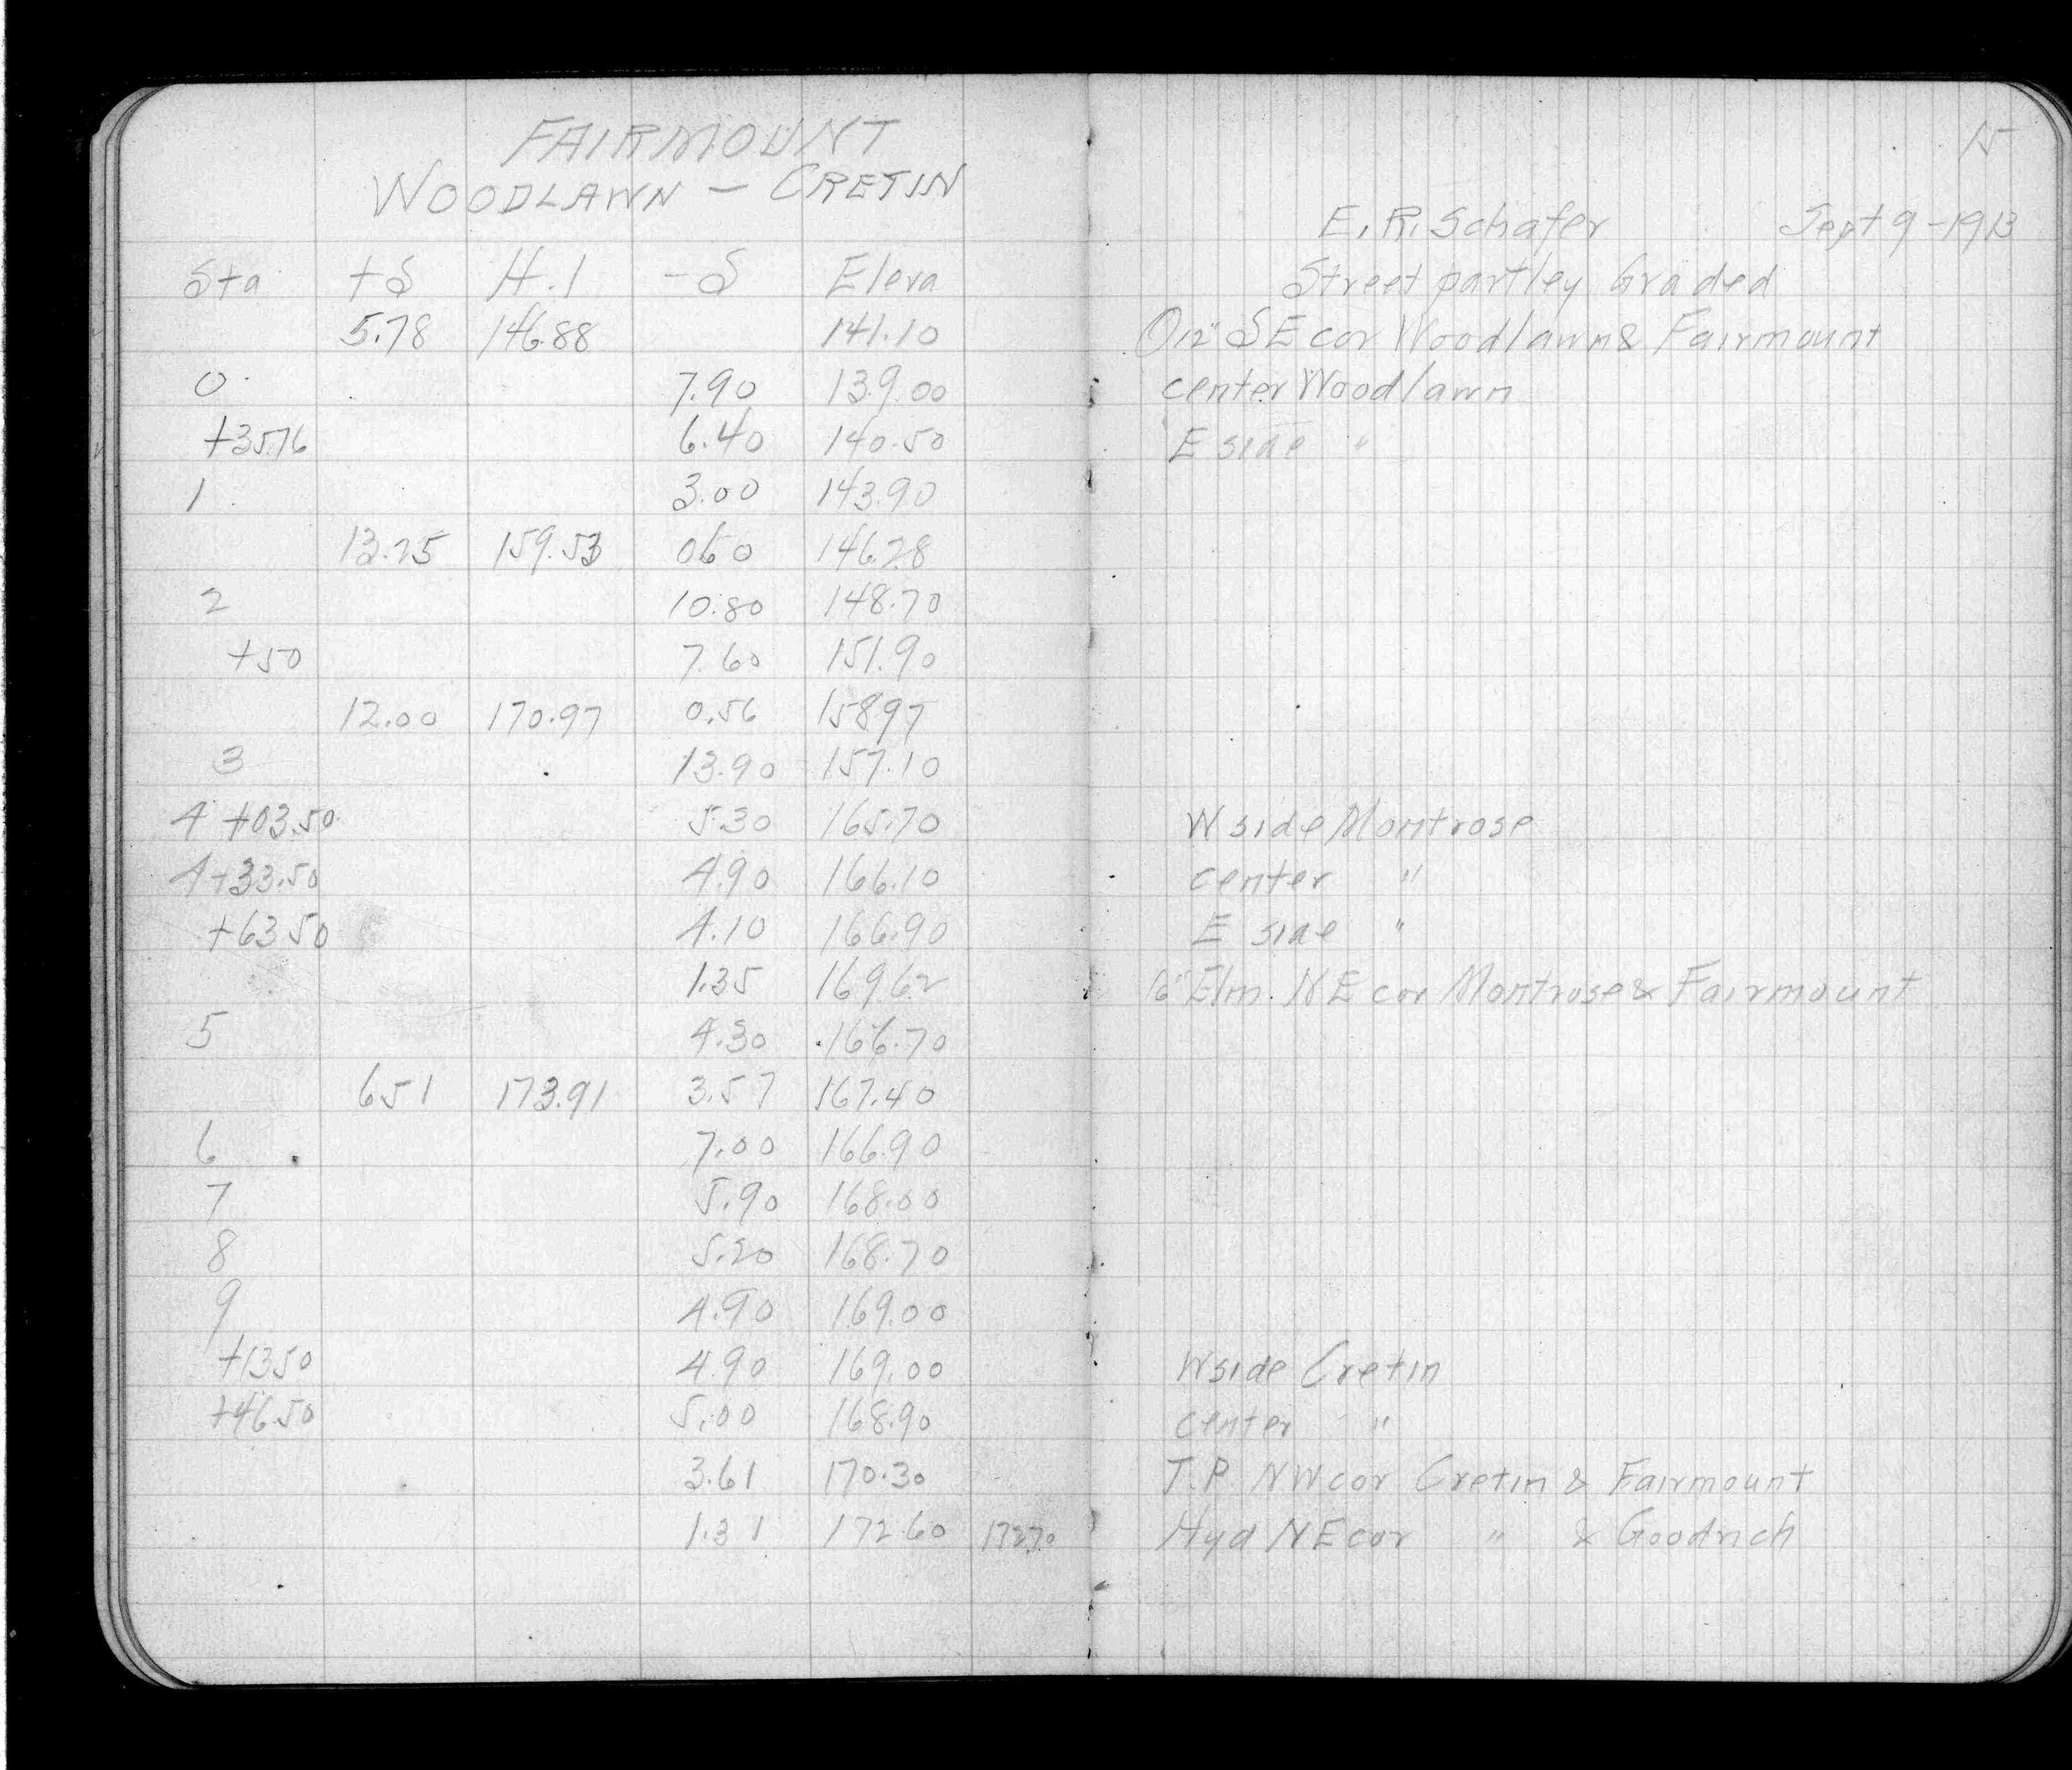 FAIRMOUNT
WOODLAWN – CRETIN
Sta +S H.I -S Eleva
5.78 146.88 141.10
0 7.90 139.00
+35.76 6.40 140.50
1 3.00 143.90
13.25 159.53 060 146.28
2 10.80 148.70
+50 7.60 151.90
12.00 170.97 0.56 158 97
3 13.90 157.10
4 +03.50 5.30 165.70
4+33.50 4.90 166.10
+63 50 4.10 166.90
1.35 169 62
5 4.30 166.70
6 51 173.91 3.57 167.40
6 7.00 166.90
7 5.90 168.00
8 5.20 168.70
9 4.90 169.00
+13 50 4.90 169.00
+46.50 5.00 168.90
3.61 170.30
1.31 172 60 172.70
15
E. R. Schafer Sept 9 - 1913
Street partley Graded
12" S E cor Woodlawn & Fairmount
center Woodlawn
E side "
W side Montrose
center "
E side "
16" Elm. N E cor Montrose & Fairmount
W side Cretin
center "
T.P. N W cor Cretin & Fairmount
Hyd N E cor " & Goodrich